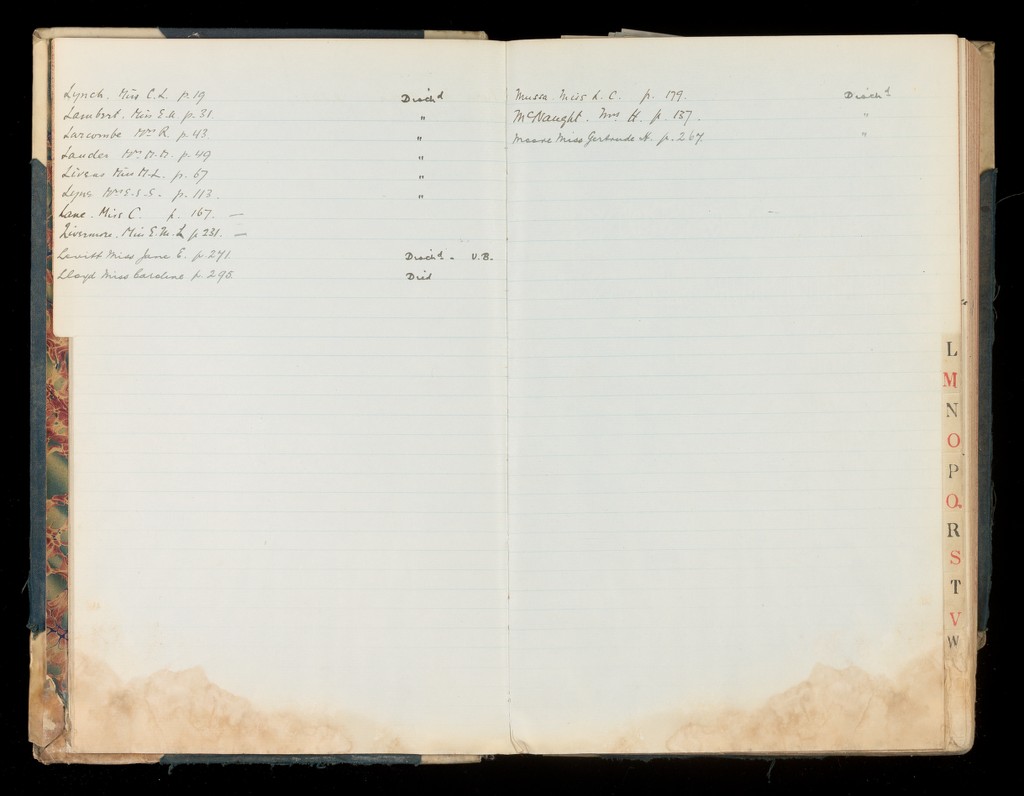 Lynch. Miss C. L. p. 19 Disch'd
Lambert. Miss E. A. p. 31. "
Larcombe Mrs R. p. 43. "
Lander Mrs M. M. p. 49 "
Livens Miss M. L. p. 67 "
Lyne Mrs E. E. S. p. 113. "
Lane. Miss C. p. 167. —
Livermore. Miss E. M. L p. 231. —
Levitt Miss Jane E. p. 271. Disch'd - U.B.
Lloyd Miss Caroline p. 295. Died
Miss L. C. p. 179. Disch'd
McNaught. Mrs H. p. 137. "
Moore Miss Gertrude H. p. 267. "
L
M
N
O
P
Q
R
S
T
V
W